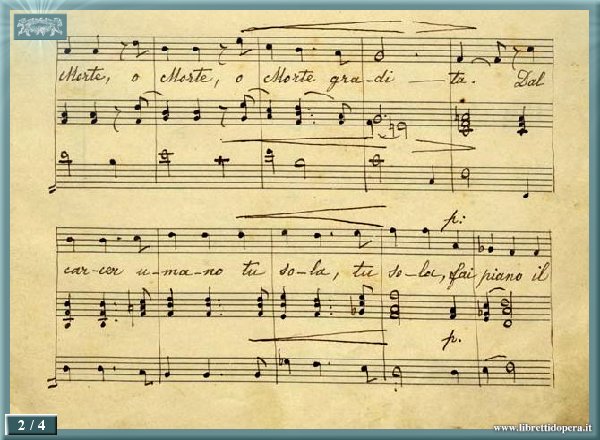 Morte, o Morte, o Morte gra-di-ta. Dal
p:
car-cer u-ma-no tu so-la, tu so-la, fai piano il
p.
2 / 4
www.librettidopera.it